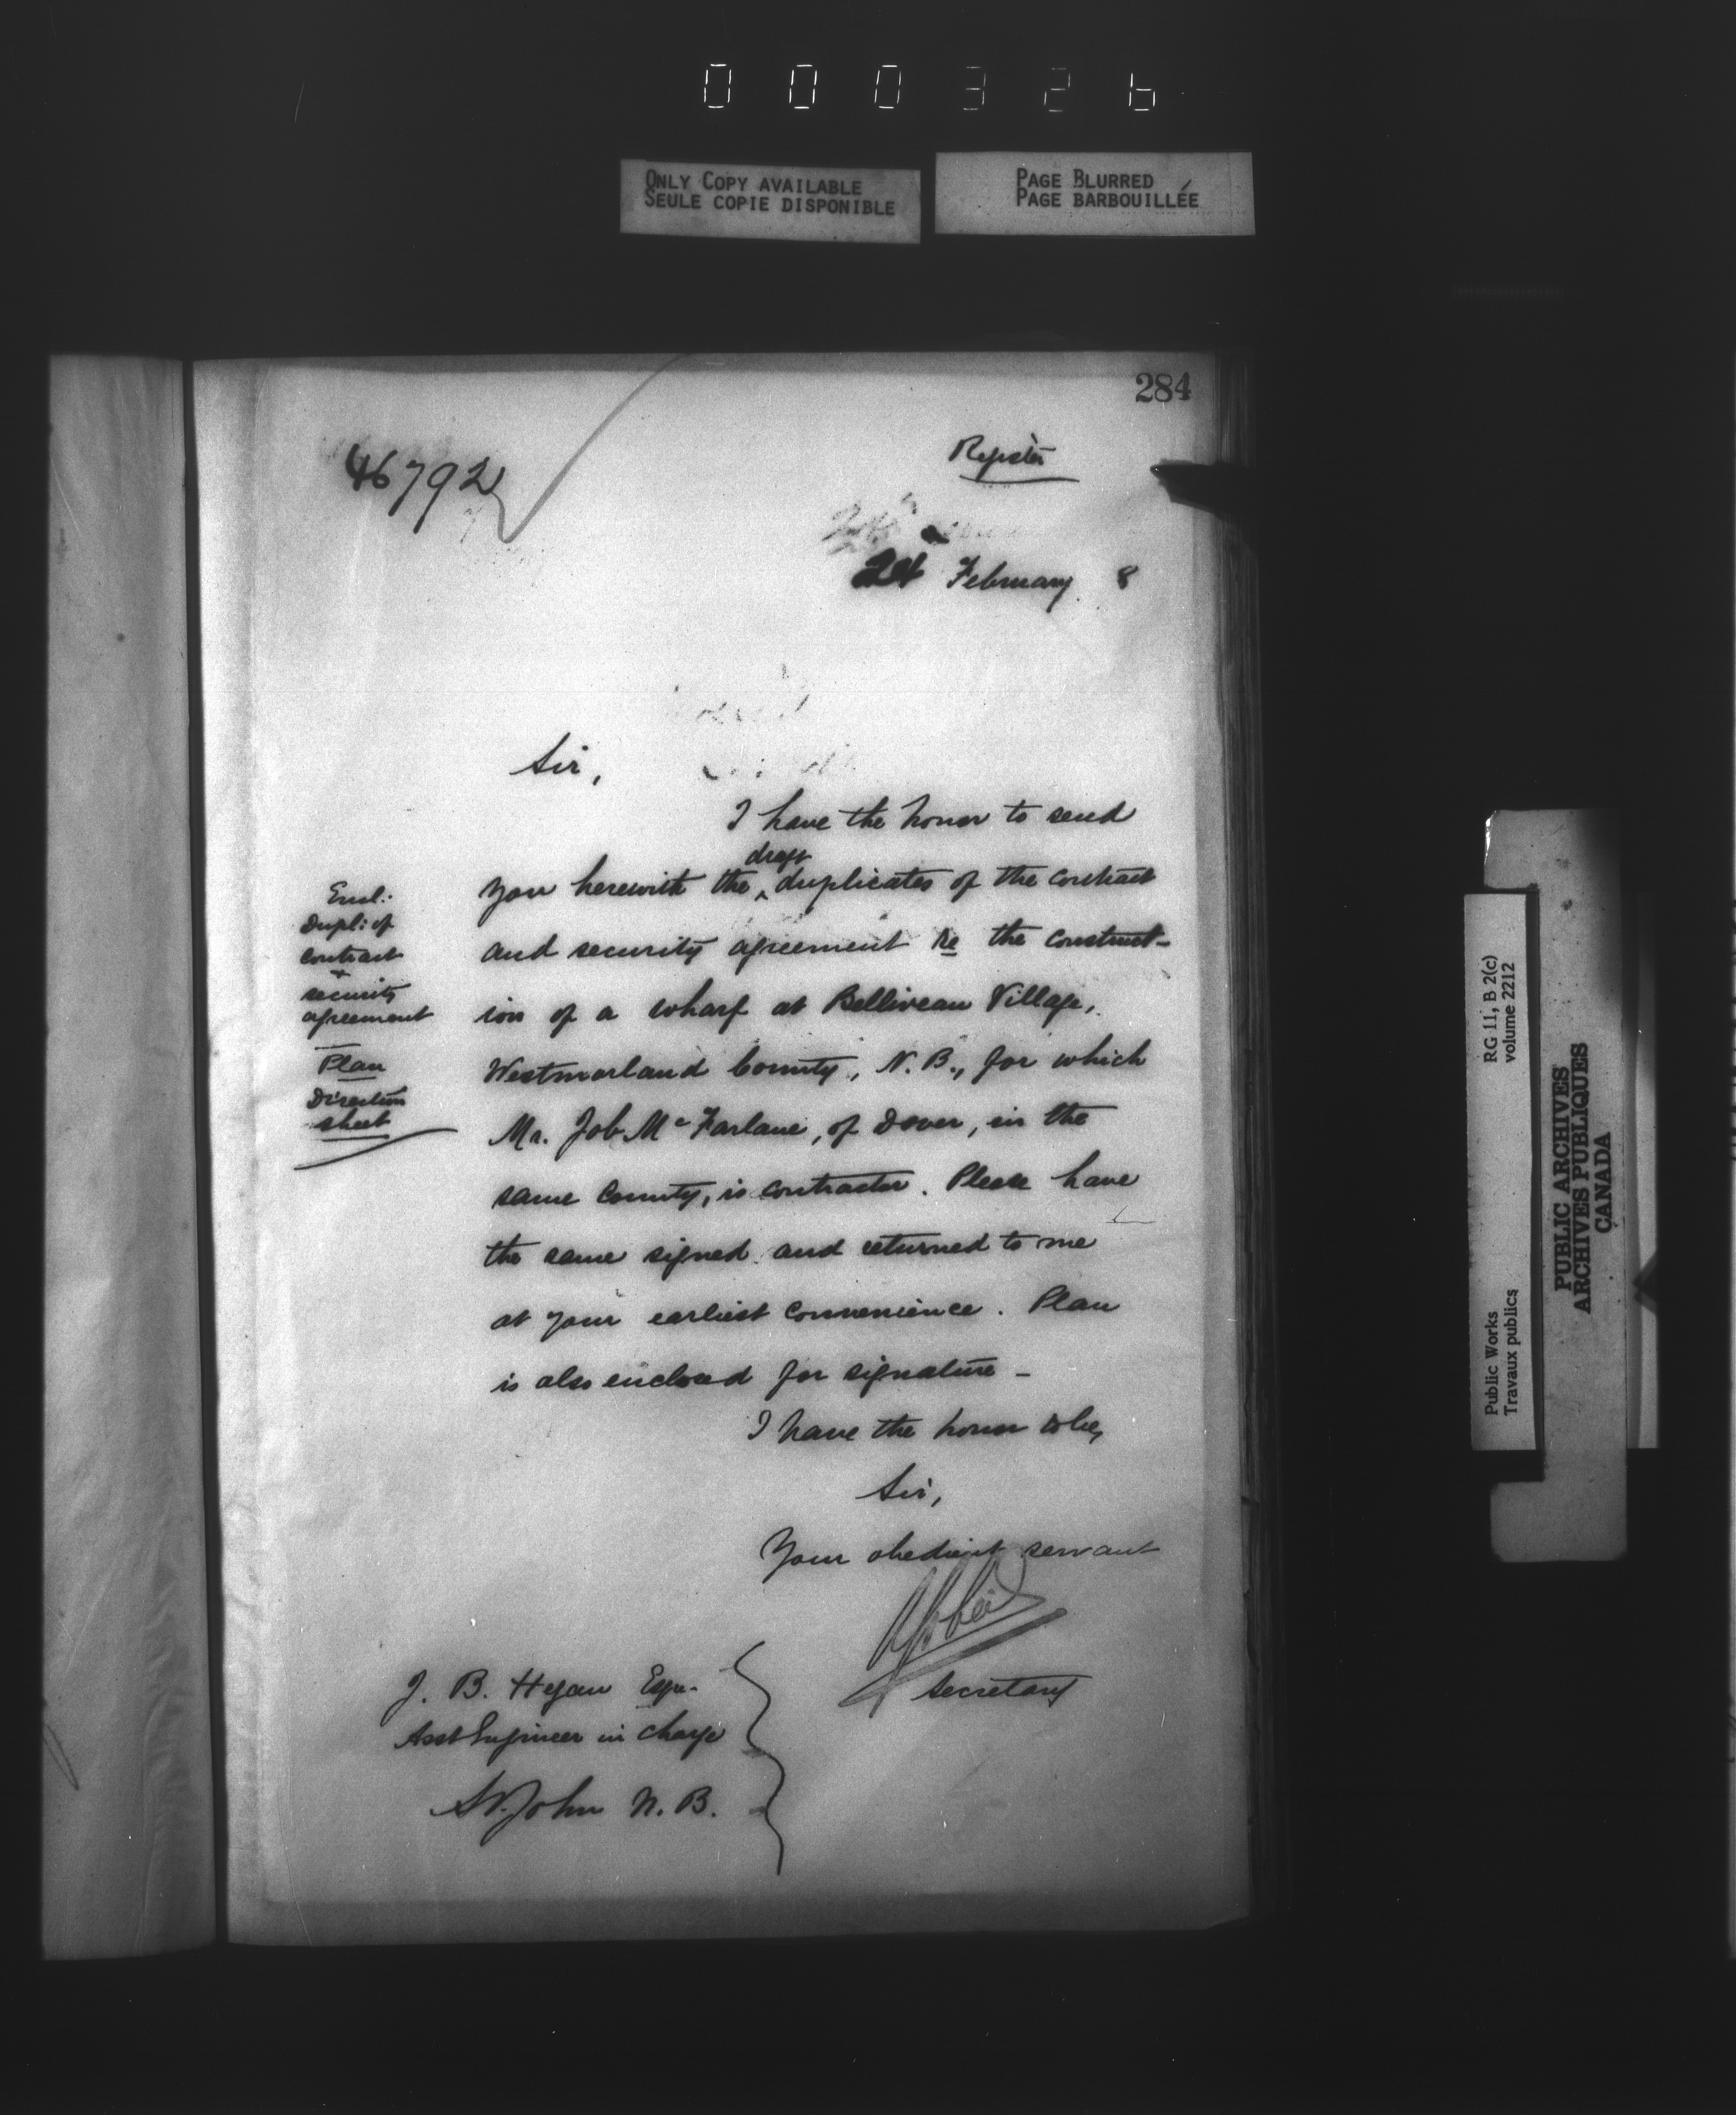 000326
ONLY COPY AVAILABLE
SEULE COPIE DISPONIBLE
PAGE BLURRED
PAGE BARBOUILLÉE
284
46792
Register
24 February 8
Sir,
I have the honor to send
you herewith the ^ draft duplicates of the contract
and security agreement re the construct-
ion of a wharf at Belliveau Village,
Westmorland County, N. B., for which
Mr. Job Mc Farlane, of Dover, in the
same County, is contractor. Please have
the same signed and returned to me
at your earliest convenience. Plan
is also enclosed for signature -
I have the honor to be,
Sir,
Your obedient servant
Secretary
Encl:
Dupl: of
contract
+
security
agreement
Plan
Direction
sheet
J. B. Hegan Esqr.
Asst Engineer in charge
St. John N. B.
RG 11, B 2(c)
volume 2212
Public Works
Travaux publics
PUBLIC ARCHIVES
ARCHIVES PUBLIQUES
CANADA